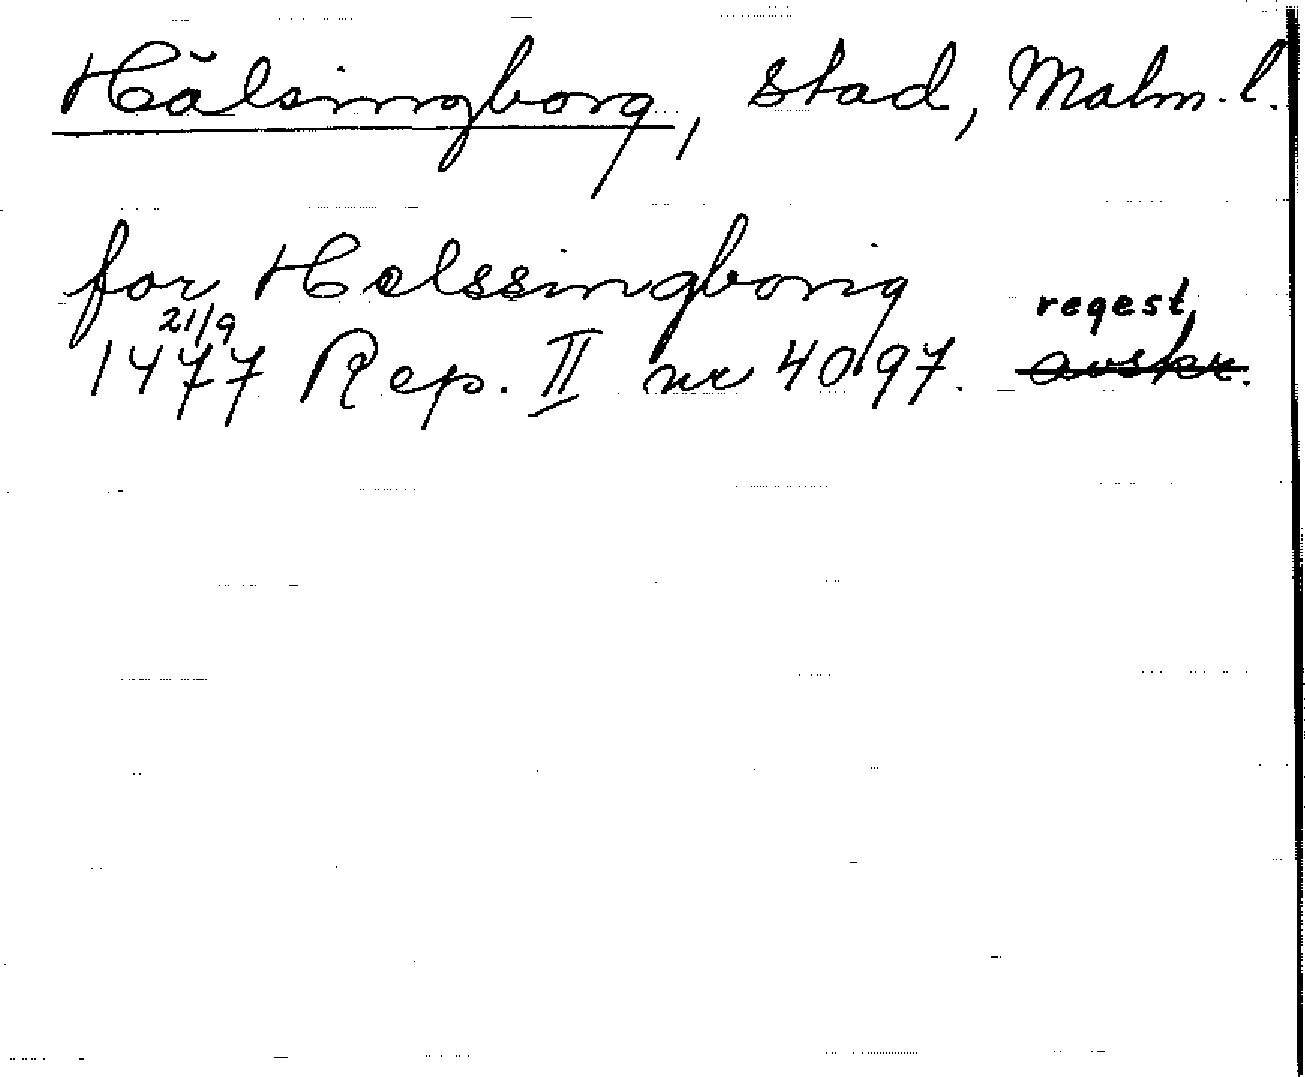 Hälsingborg, stad, Malm. l.
for Helssingborig
21/9 regest
1477 Rep. II nr 4097. avskr.